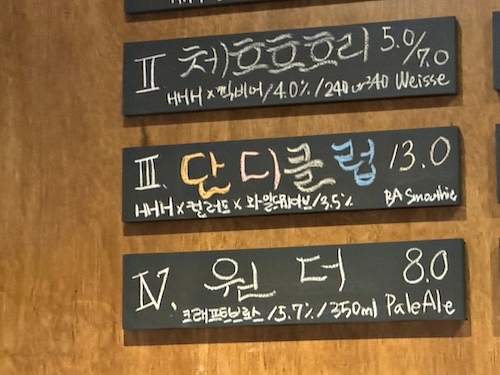 II 체호호호리 5.0/7.0
HHH x 끽비어/4.0%/240 or 340 Weisse
III. 단디클럽 13.0
HHH x 컬러드 x 와일드웨이브/3.5% BA Smoothie
IV. 원더 8.0
크래프트브로스/5.7%/350ml Pale Ale